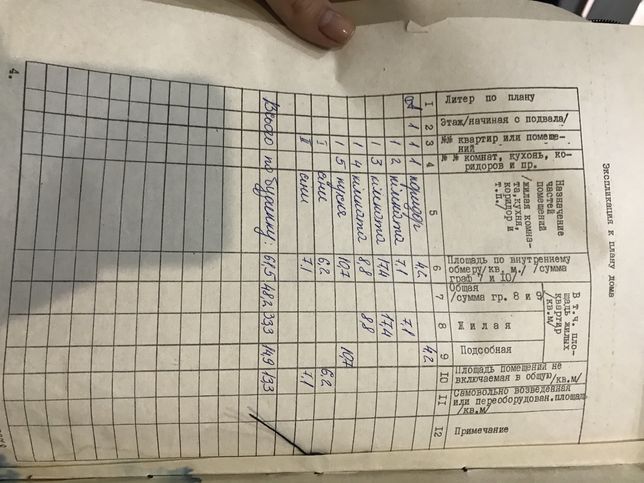 Экспликация к плану дома
Литер по плану
Этаж/начиная с подвала/
№№ квартир или помещений
№№ комнат, кухонь, коридоров и пр.
Назначение частей помещений /жилая комната, кухня, коридор и т.п./
Площадь по внутреннему обмеру/кв. м./ /сумма граф 7 и 10/
В т.ч. площадь жилых квартир /кв.м/
Общая /сумма гр. 8 и 9/
Жилая
Подсобная
Площадь помещений не включаемая в общую/кв.м/
Самовольно возведенная или переоборудован.площадь /кв.м/
Примечание
1 2 3 4 5 6 7 8 9 10 11 12
1 1 1 коридор 4,2 4,2
1 2 кімната 7,1 7,1
1 3 кімната 17,4 17,4
1 4 кімната 8,8 8,8
1 5 кухня 10,7 10,7
I сіни 6,2 6,2
II сіни 7,1 7,1
Всього по будинку: 61,5 48,2 33,3 14,9 13,3
4.